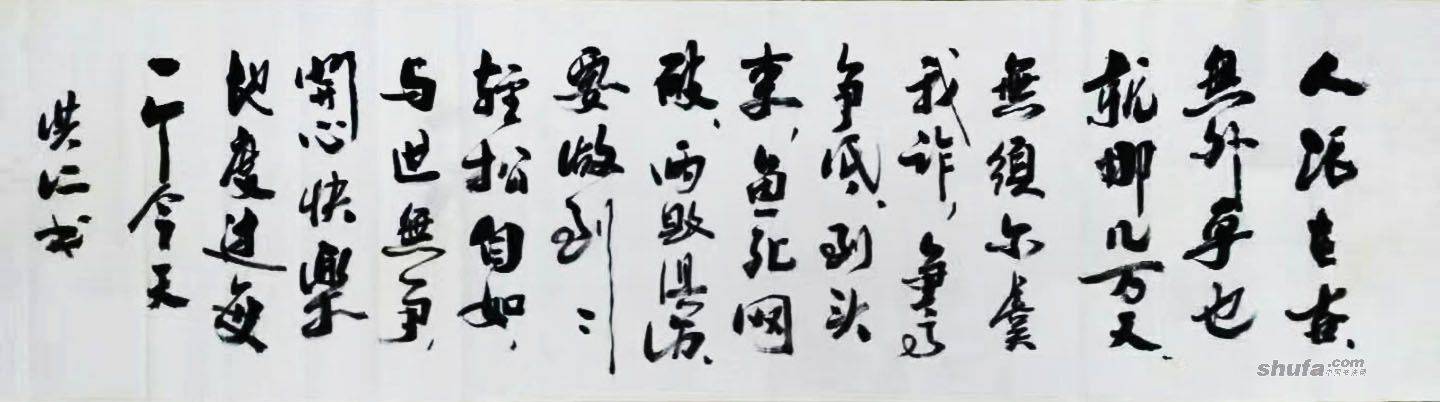 人
無外乎也
就那几万天、
無須尔虞
我诈，
争、到头
来，鱼死网
破、两败俱伤、
要做到：
轻松自如，
与世無争，
開心快樂
地度过每
一个今天
洪仁书
shufa.com